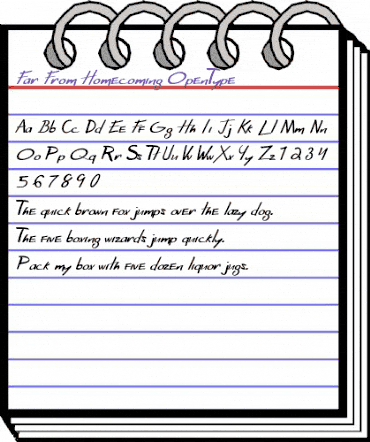 Far From Homecoming OpenType
Aa Bb Cc Dd Ee Ff Gg Hh Ii Jj Kk Ll Mm Nn
Oo Pp Qq Rr Ss Tt Uu Vv Ww Xx Yy Zz 1 2 3 4
5 6 7 8 9 0
The quick brown fox jumps over the lazy dog.
The five boxing wizards jump quickly.
Pack my box with five dozen liquor jugs.